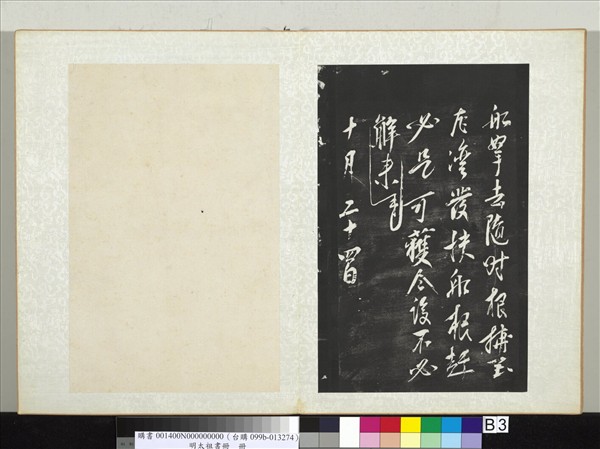 船拏去随时根捕至
在湾發快船根赶
必是可獲今後不必
解来
十月二十四日
購書 001400N000000000 ( 台購 099b-013274 )
明太祖書冊 冊
B 3